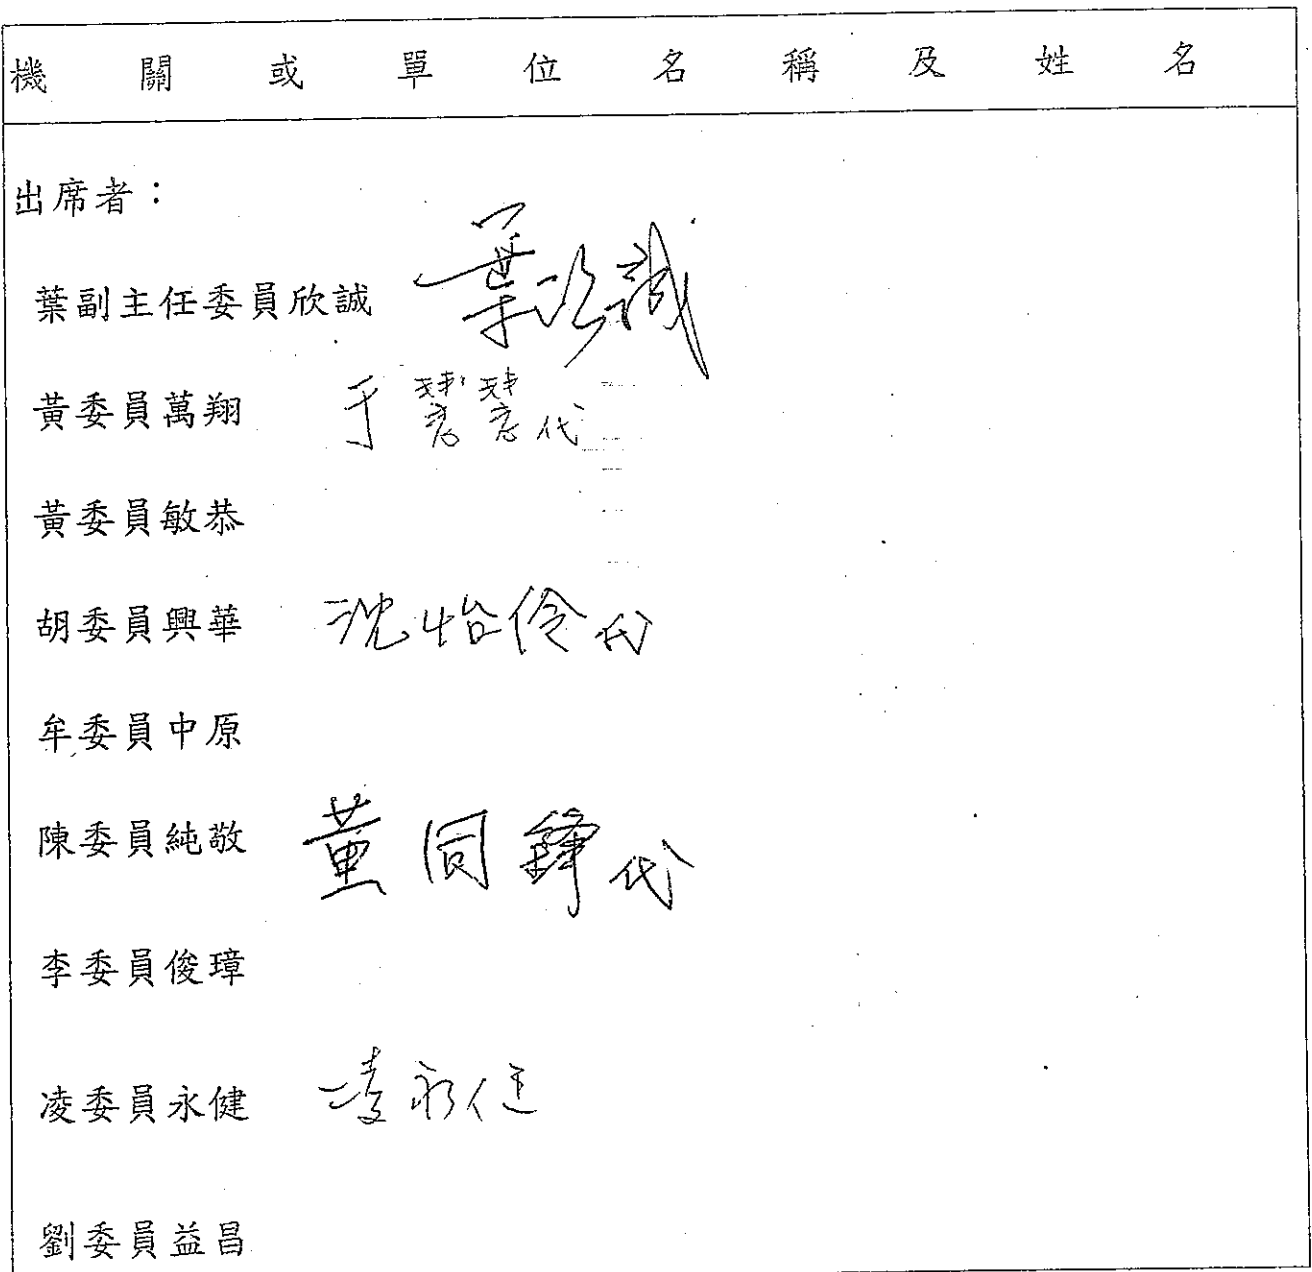 機關或單位名稱及姓名
出席者：
葉副主任委員欣誠 葉欣誠
黃委員萬翔 于慧慧代
黃委員敏恭
胡委員興華 沈怡伶代
牟委員中原
陳委員純敬 董同鋒代
李委員俊璋
凌委員永健 凌永健
劉委員益昌